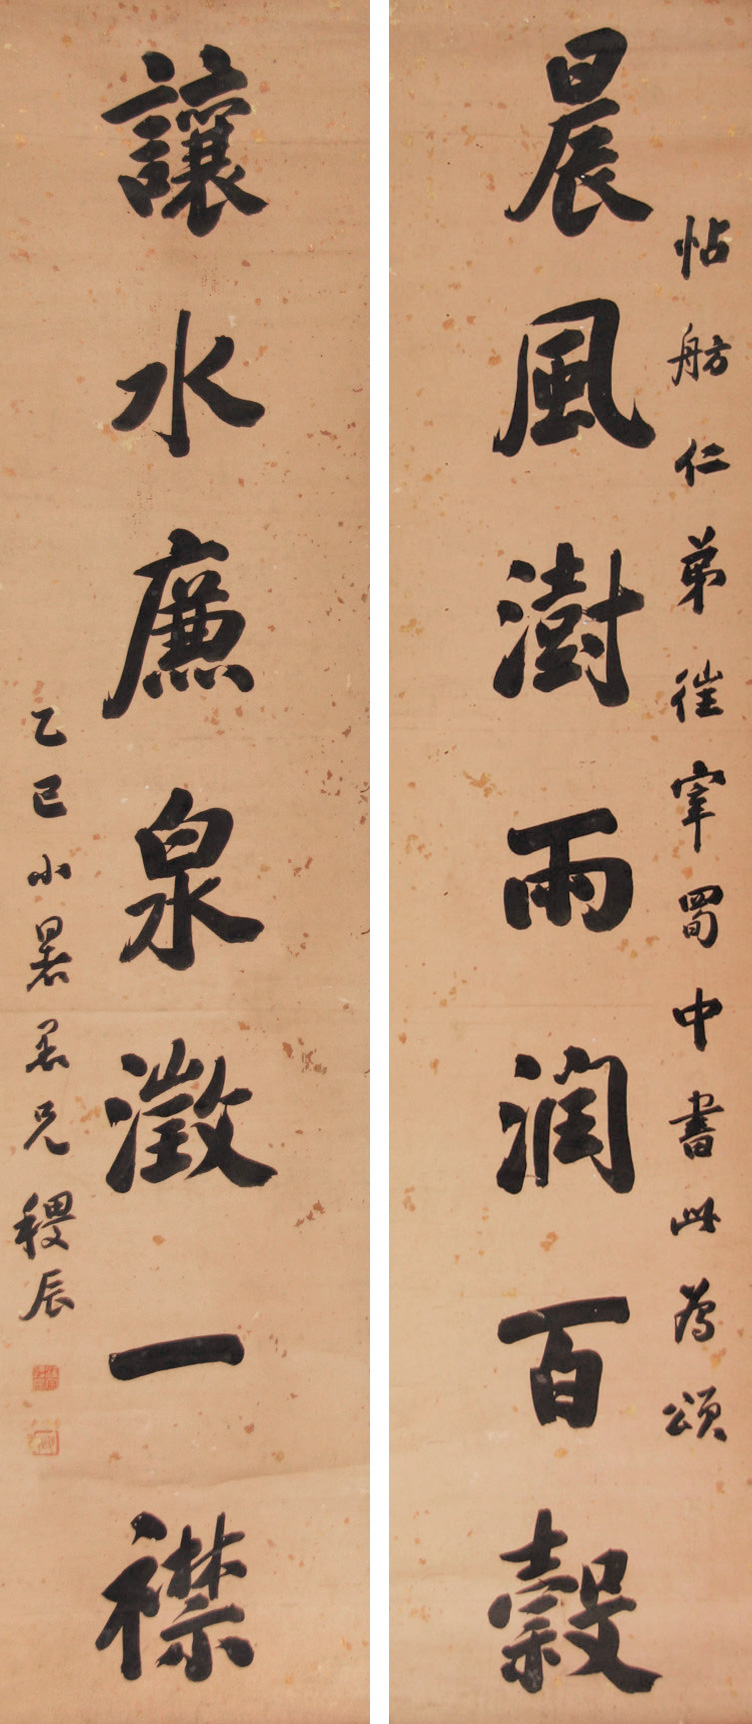 怗舫仁弟徃宰蜀中書此為頌
晨風澍雨潤百穀
讓水廉泉澂一襟
乙巳小暑愚兄稷辰